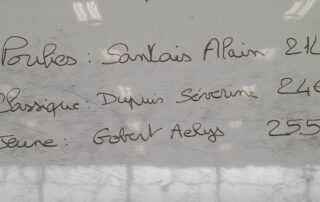 Poulies : Santais Alain
Classique : Dupuis Séverine 246
Jeune : Gobert Aelys 255